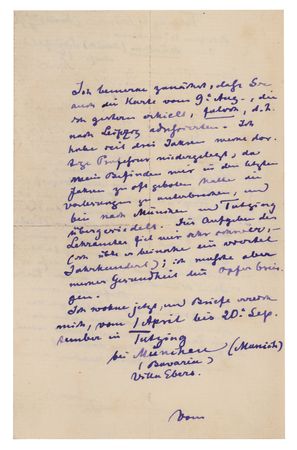 Ich bemerke zunächst, dass Sie
auch die Karte vom 9. Aug., die
ich gestern erhielt, falsch, d. h.
nach Leipzig adressierten. Ich
habe seit drei Jahren meine dor-
tige Professur niedergelegt, da
mein Befinden mir in den letzten
Jahren zu oft geboten hatte die
Vorlesungen zu unterbrechen, und
bin nach München und Tutzing
übergesiedelt. Das Aufgeben des
Lehramtes fiel mir sehr schwer,
(ich übte es beinahe ein viertel
Jahrhundert); ich musste aber
meiner Gesundheit dies Opfer brin-
gen.
Ich wohne jetzt, und Briefe
mich, vom 1 April bis 20. Sep-
tember in Tutzing
bei München (Munich)
(Bavaria)
Villa Ebers.
Vom